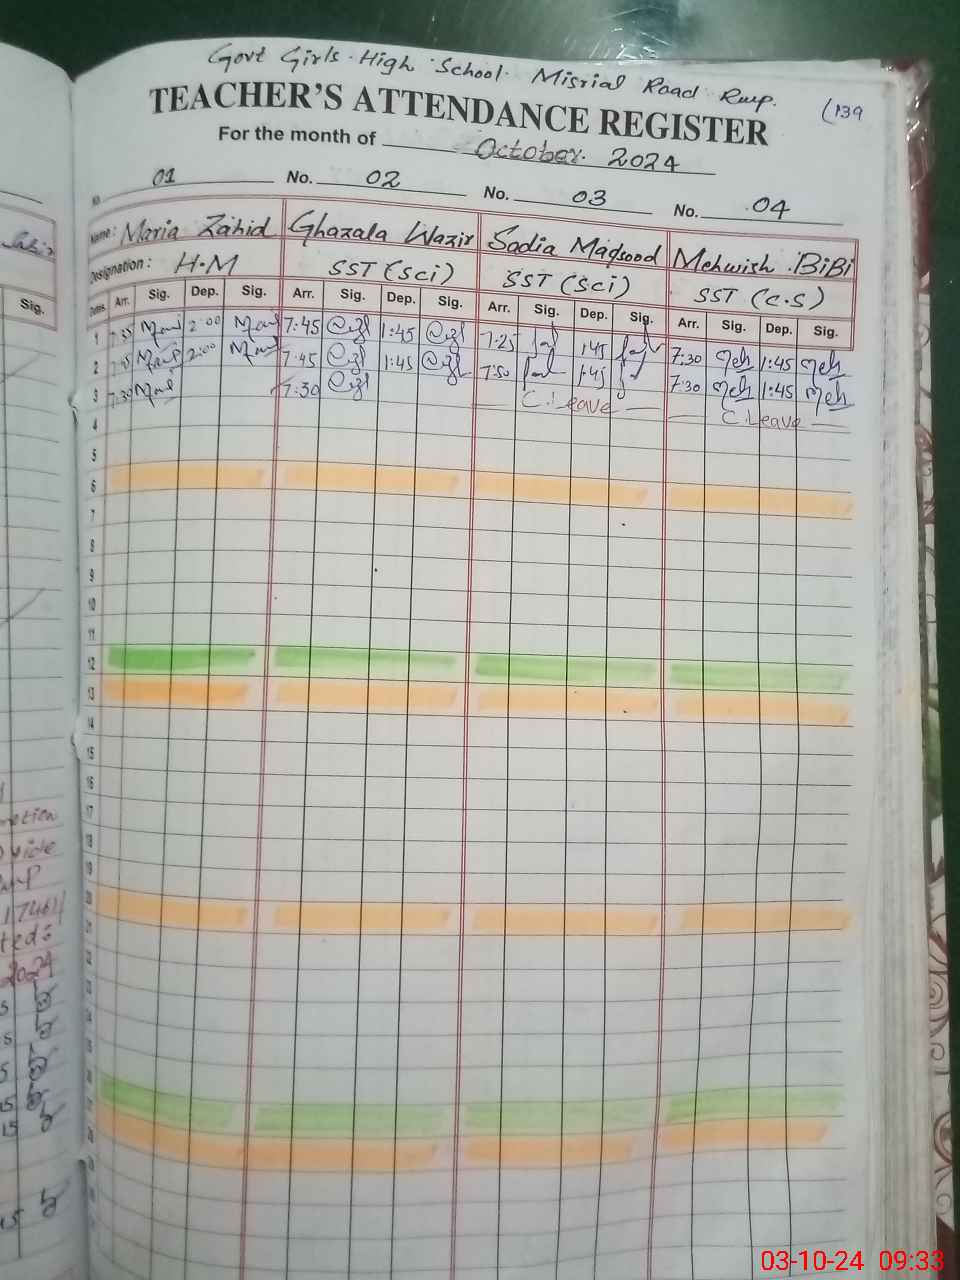 Govt Girls High School Misrial Road Rwp.
(139
TEACHER'S ATTENDANCE REGISTER
For the month of October 2024
01 No. 02 No. 03 No. 04
Name: Maria Zahid Ghazala Wazir Sadia Maqsood Mehwish BiBi
Designation: H.M SST (Sci) SST (Sci) SST (C.S)
Dates. Arr. Sig. Dep. Sig. Arr. Sig. Dep. Sig. Arr. Sig. Dep. Sig. Arr. Sig. Dep. Sig.
1 7:35 2:00 7:45 1:45 7:25 1:45 7:30 Meh 1:45 Meh
2 7:45 2:00 7:45 1:45 7:50 1:45 7:30 Meh 1:45 Meh
3 7:30 7:30 C.Leave C.Leave
4
5
6
7
8
9
10
11
12
13
14
15
16
17
18
19
20
21
22
23
24
25
26
27
28
29
Sig.
vide
1746/
ted:
2024
03-10-24 09:33